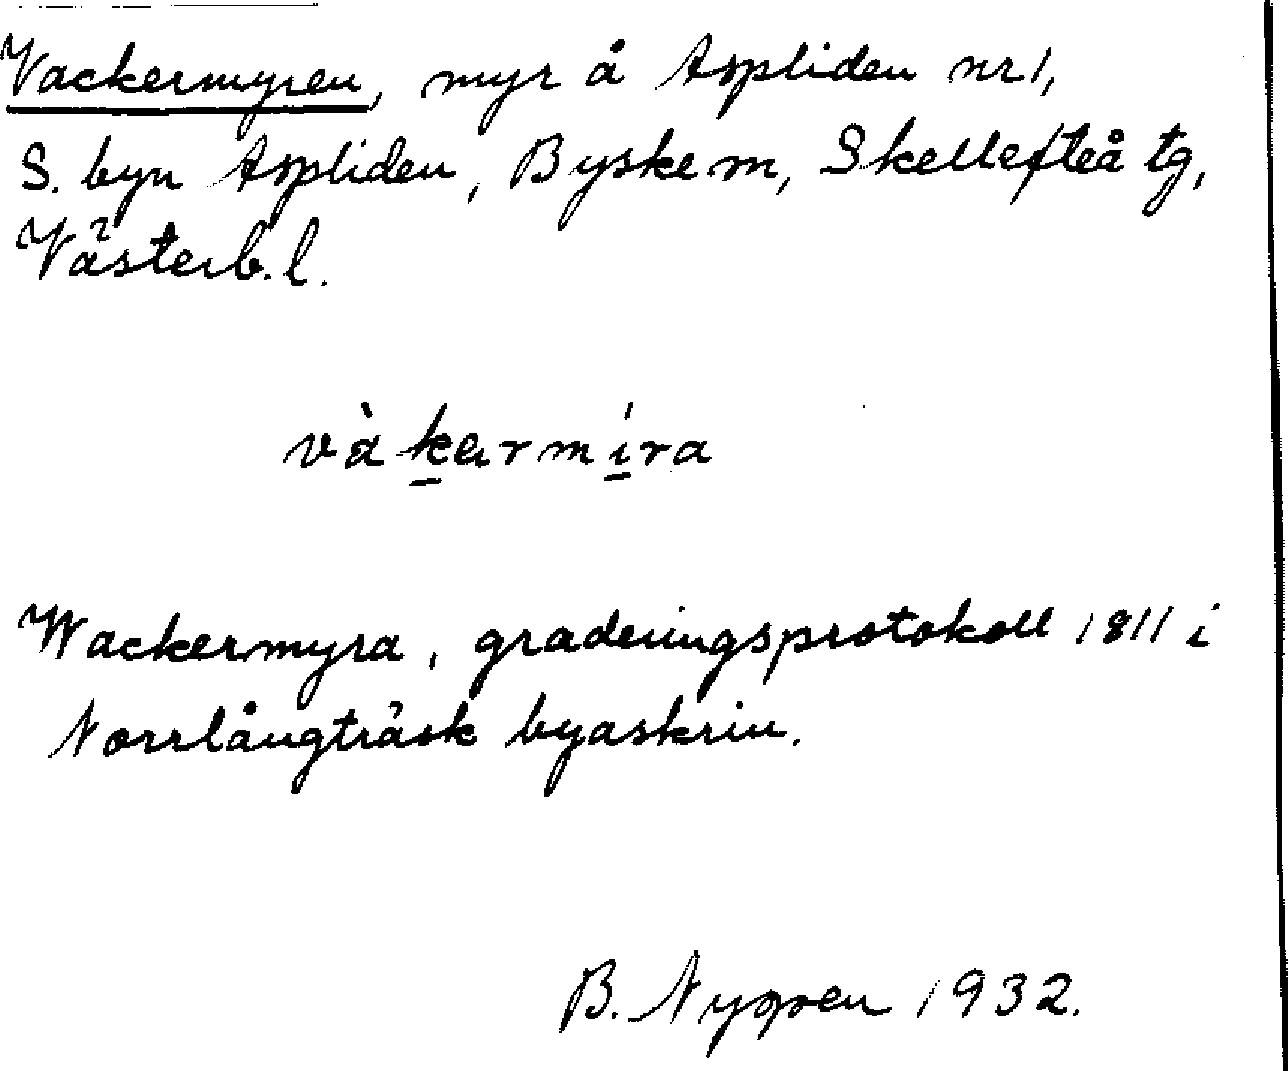 Vackermyren, myr å Aspliden nr 1,
S. byn Aspliden, Byske sn, Skellefteå tg,
Västerb. l.
vàkermíra
Wackermyra, graderingsprotokoll 1811 i
Norrlångträsk byaskrin.
B. 1932.